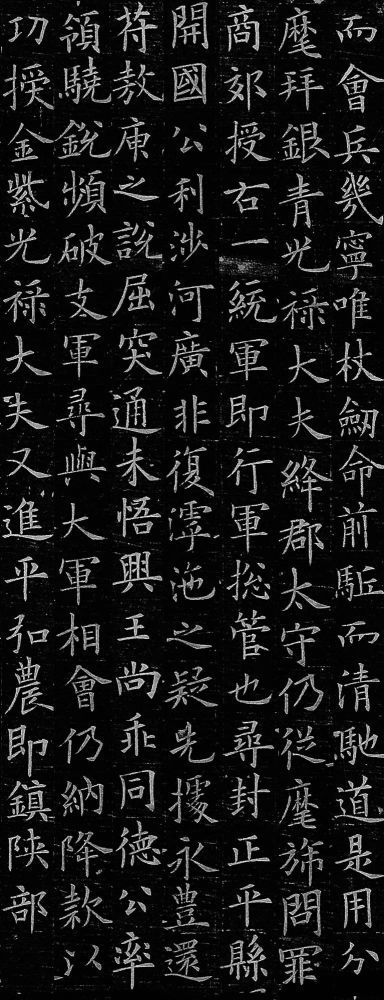 而會兵幾寧唯杖劒命前駈而清馳道是用分
麾拜銀青光祿大夫絳郡太守仍從麾旆問罪
商郊授右一統軍即行軍捴管也尋封正平縣
開國公利涉河廣非復滹沲之疑先據永豊還
苻敖庾之說屈突通未悟興王尚乖同德公率
領驍銳頻破支軍尋與大軍相會仍納降款以
功授金紫光祿大夫又進平弘農即鎮陝部